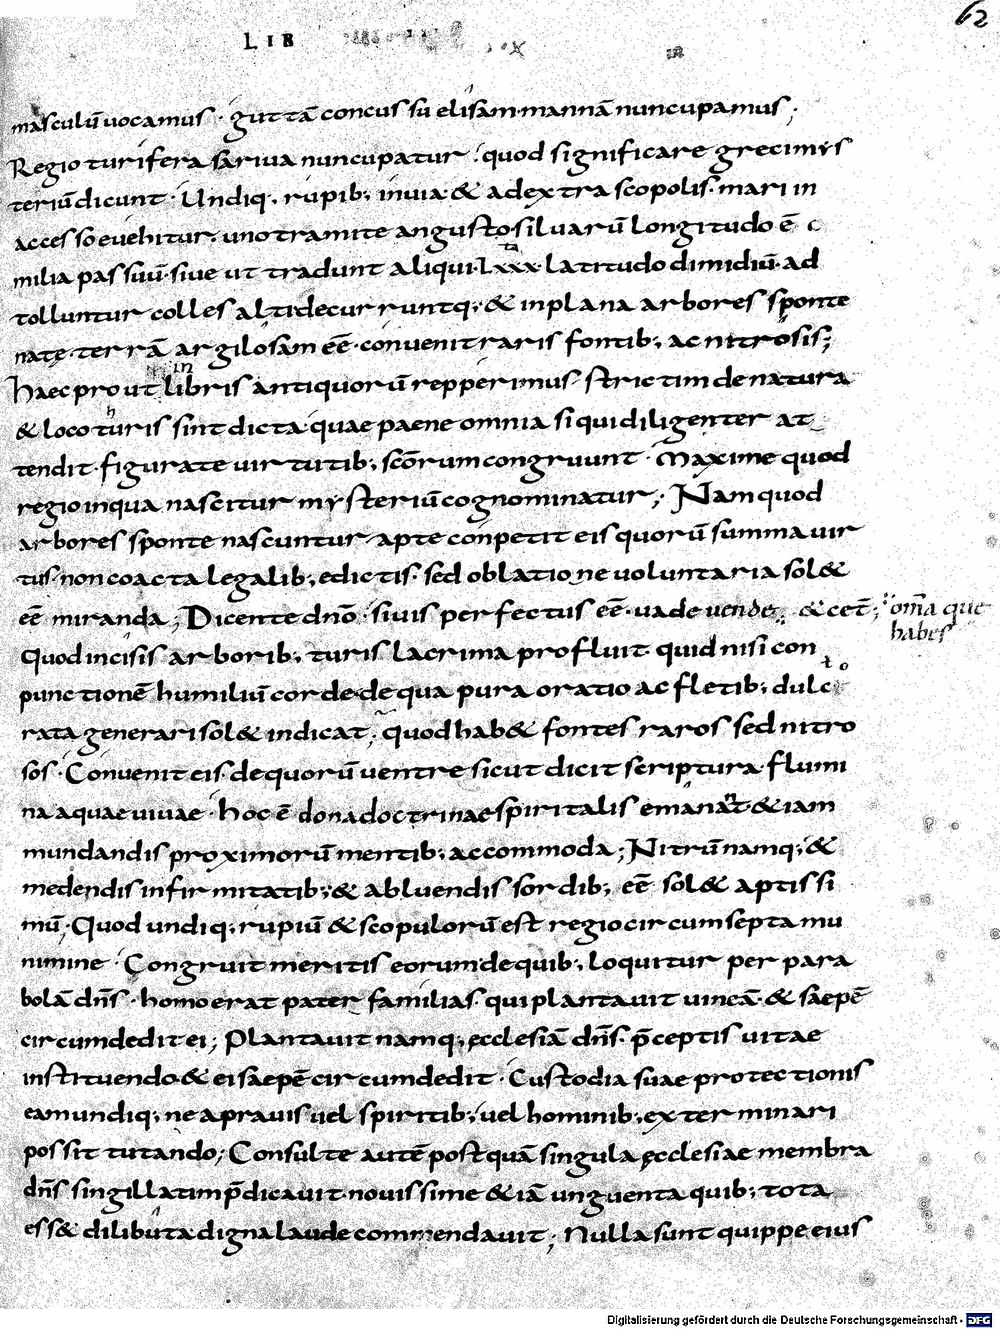 62
LIB
masculū uocamus · guttā concussū elisam mannā nuncupamus ;
Regio turifera sariua nuncupatur · quod significare greci mys
teriū dicunt · Undiq; rupib; inuia & a dextra scopolis · mari in
accesso euehitur, uno tramite angusto siluarū longitudo ē c
milia passuū · siue ut tradunt aliqui · lxxx · latitudo dimidiū · ad
tolluntur colles alti decurruntq; & in plana arbores sponte
natę · terrā argilosam eē · conuenit raris fontib; ac nitrosis ;
haec prout in libris antiquorū repperimus strictim de natura
& loco thuris sint dicta quae paene omnia siqui diligenter at
tendit · figurate uirtutib; scōrum congruunt · Maxime quod
regio in qua nascitur mysteriū cognominatur ; Nam quod
arbores sponte nascuntur apte conpetit eis quorū summa uir
tus · non coacta legalib; edictis · sed oblatione uoluntaria sol&
eē miranda ; Dicente dnō · si uis perfectus eē · uade uende & cet̄ ; om̄a que
habes
Quod incisis arborib; turis lacrima profluit quid nisi con
punctionē humiliū corde de qua pura oratio ac fletib; dulc
rata generari sol& indicat ; quod hab& fontes raros sed nitro
sos · Conuenit eis de quorū uentre sicut dicit scriptura flumi
na aquae uiuae · hoc ē dona doctrinae spiritalis emanat · & iam
mundandis proximorū mentib; accommoda ; Nitrū namq; &
medendis infirmitatib; & abluendis sordib; eē sol& aptissi
mū · Quod undiq; rupiū & scopulorū est regio circumsepta mu
nimine · Congruit meritis eorum de quib; loquitur per para
bolā dn̄s · homo erat pater familias qui plantauit uineā · & saepē
circumdedit ei ; Plantauit namq; ęcclesiā dn̄s · p̄ceptis uitae
instituendo · & ei saepē circumdedit · Custodia suae protectionis
eam undiq; ne a prauis uel spiritib; uel hominib; exterminari
possit tutando ; Consulte autē postquā singula ęcclesiae membra
dn̄s singillatim p̄dicauit · nouissime & iā unguenta quib; tota
ess& dilibuta digna laude commendauit ; Nulla sunt quippe eius
Digitalisierung gefördert durch die Deutsche Forschungsgemeinschaft - DFG